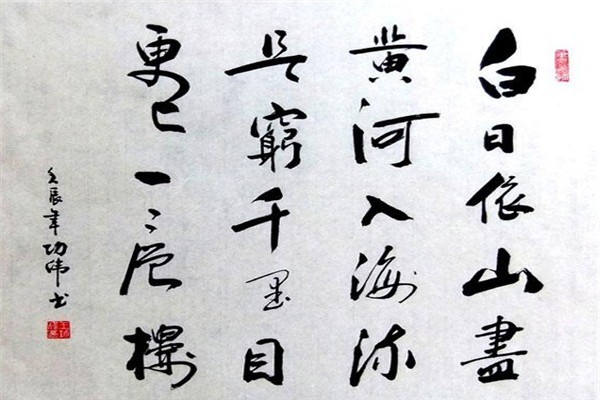 白日依山盡
黄河入海流
窮千里目
更上一層樓
壬辰年功伟书